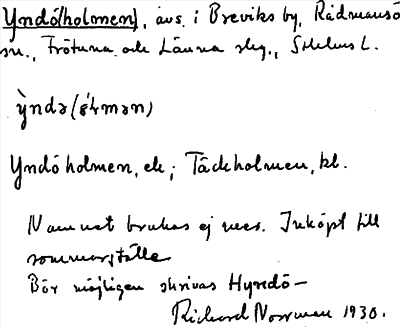 Yndö(holmen), avs. i Breviks by, Rådmansö
sn., Frötuna och Länna skg., Sthlms L.
ỳndə(ɷlmən)
Yndöholmen, ek; Täckholmen, kl.
Namnet brukas ej mer. Inköpt till
sommarställe
Bör möjligen skrivas Hyndö—
Richard Norrman 1930.